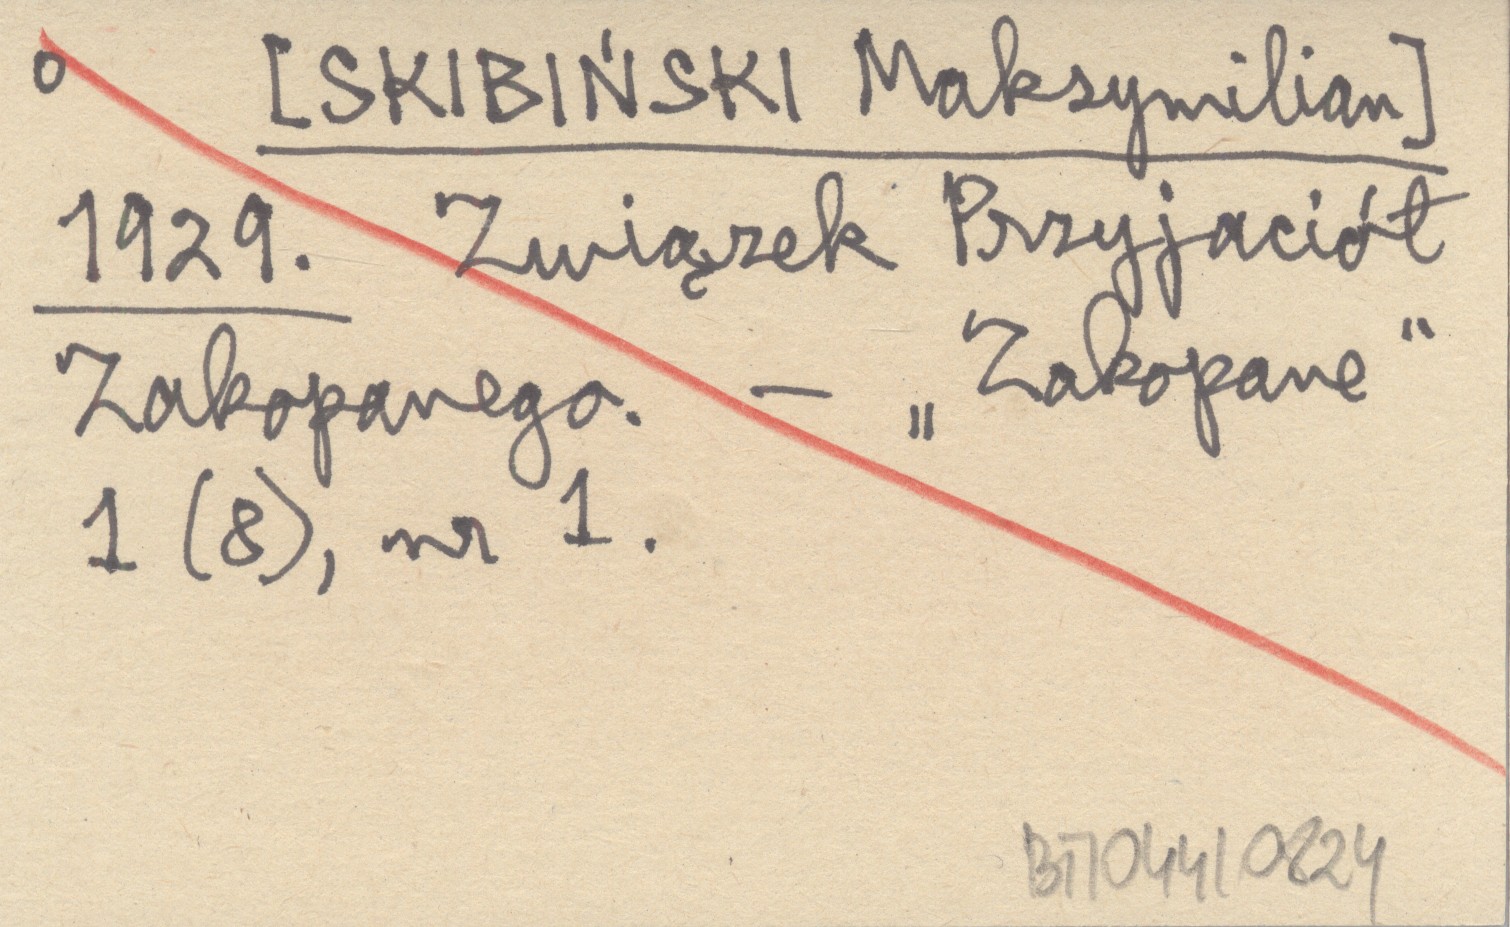 o [SKIBIŃSKI Maksymilian]
1929. Związek Przyjaciół
Zakopanego. — „Zakopane"
1 (8), nr 1.